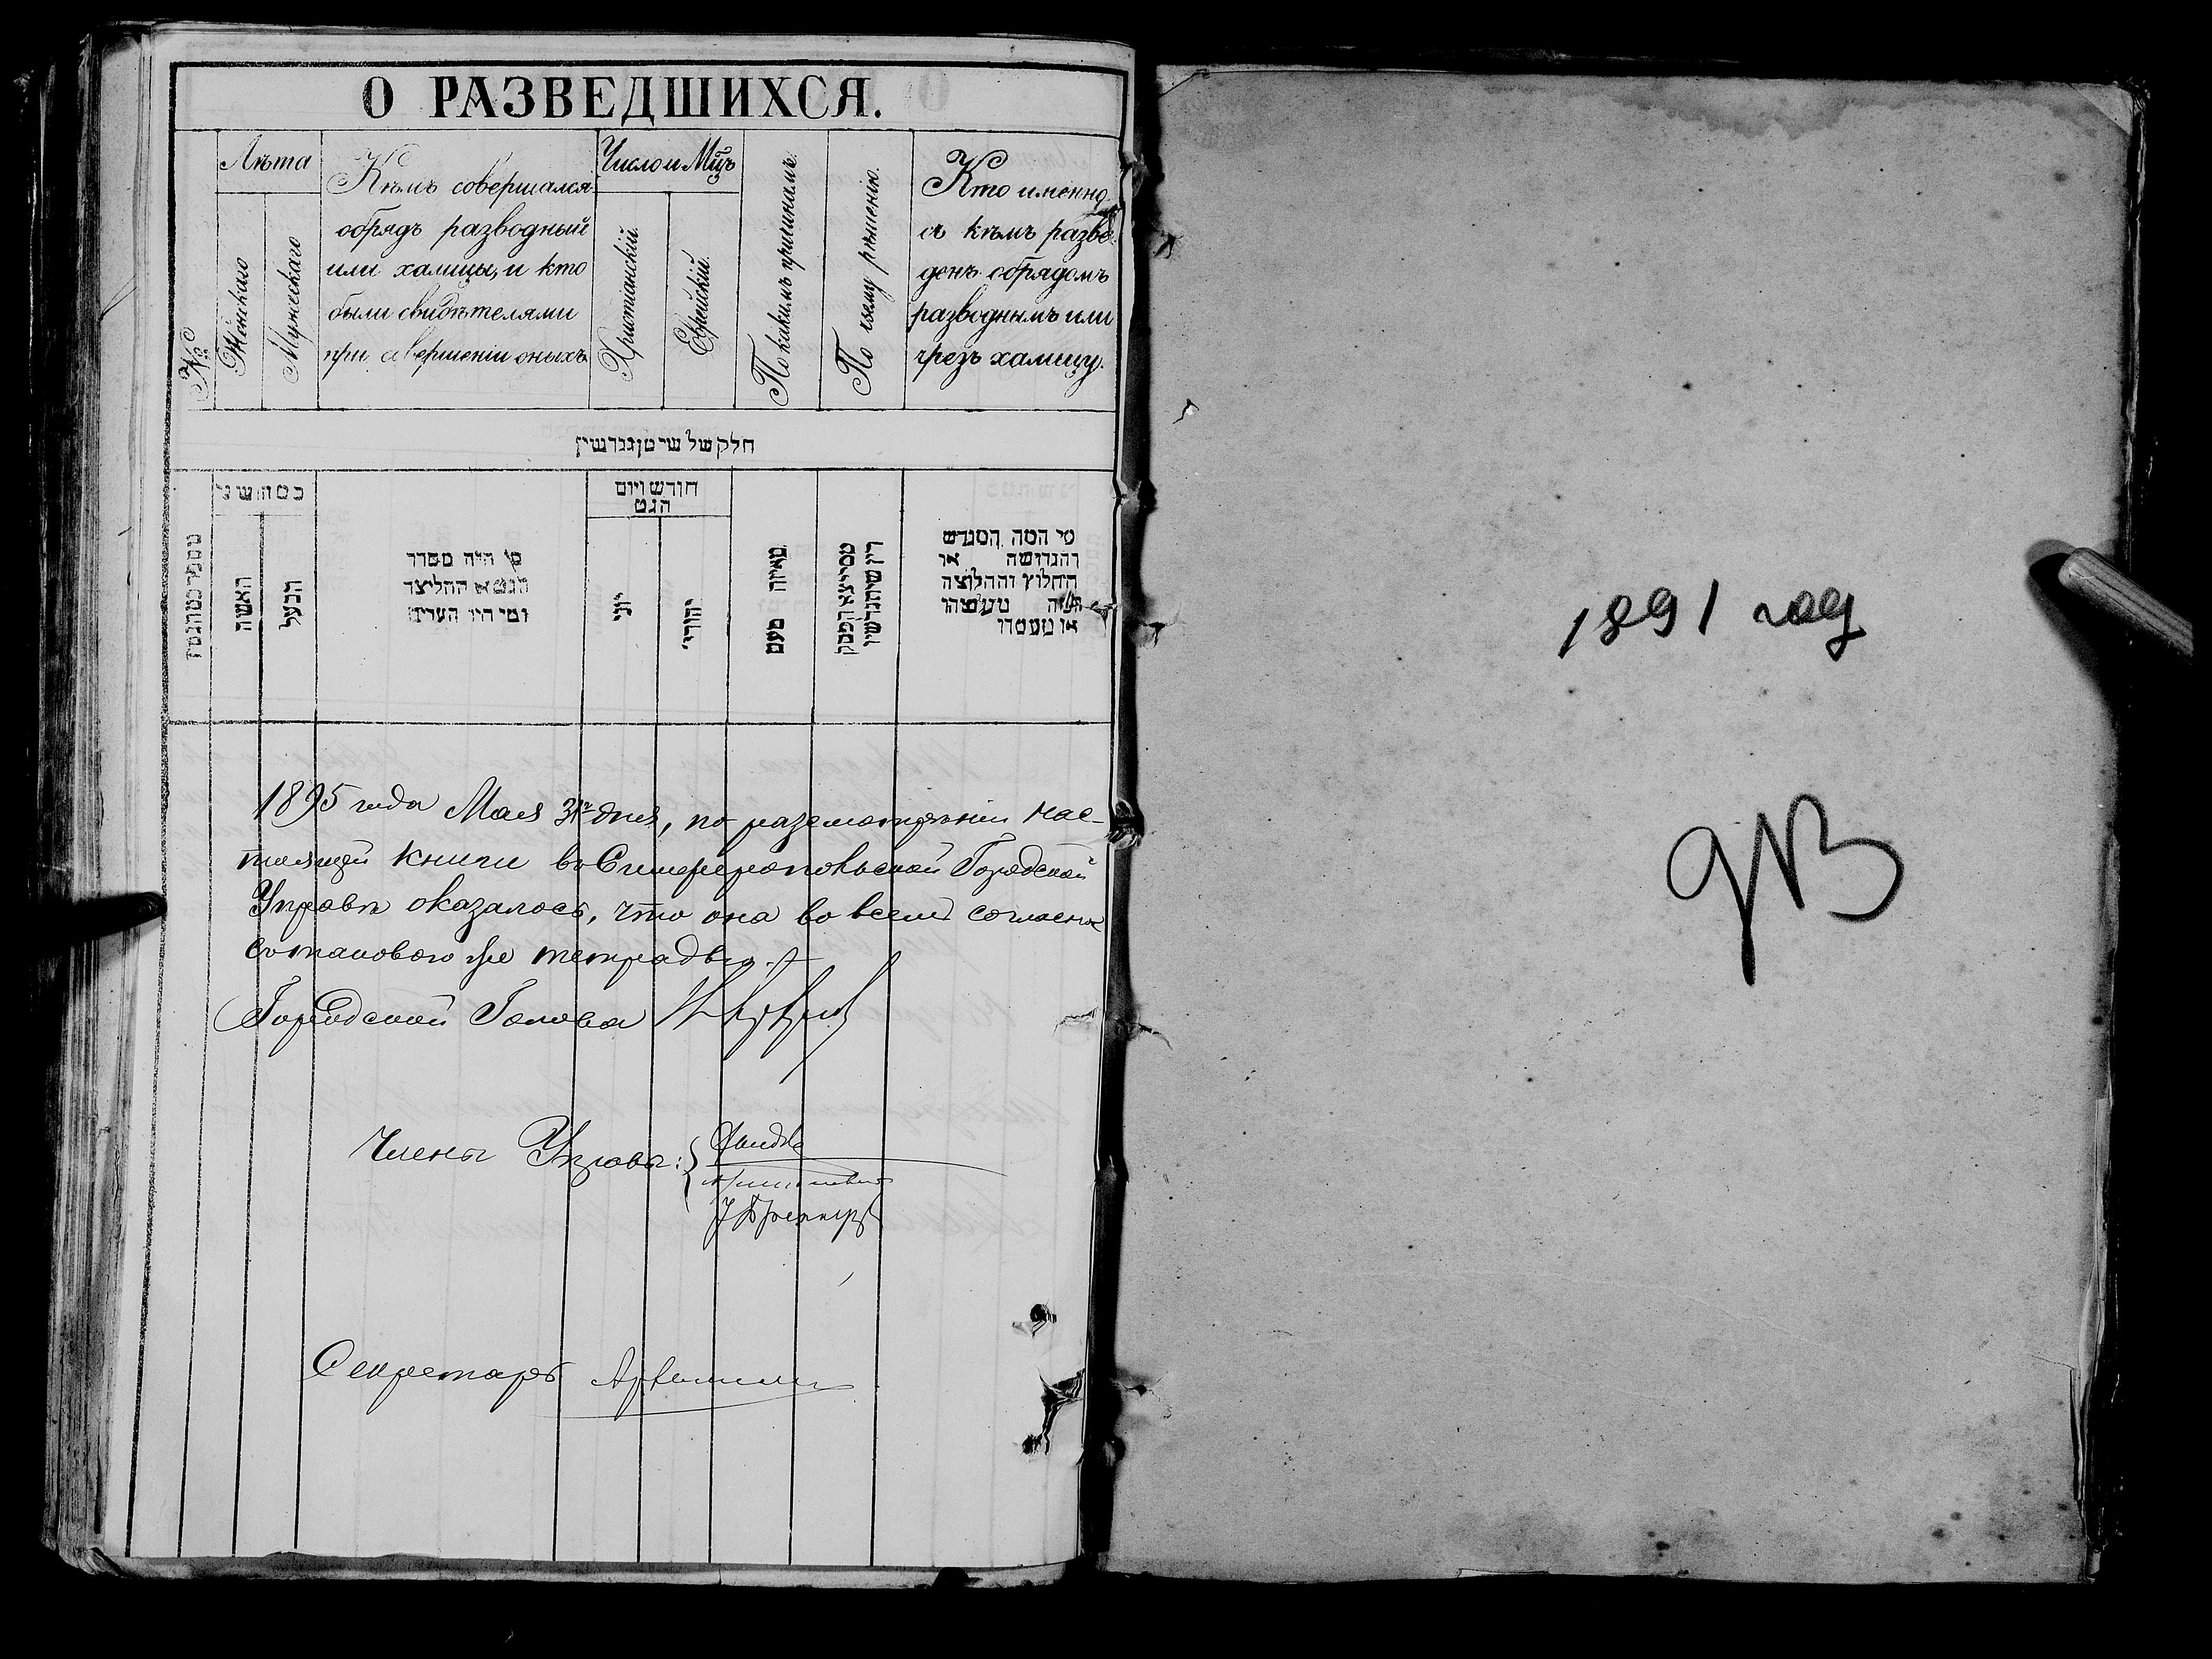 О РАЗВЕДШИХСЯ.
№
Лѣта
Женскаго
Мужескаго
Кѣмъ совершался
обрядъ разводный
или халицы, и кто
были свидѣтелями
при совершеніи оныхъ
Число и Мцъ
Христіанскій.
Еврейскій.
По какимъ причинамъ.
По чьему рѣшенію.
Кто именно
съ кѣмъ разве
денъ обрядомъ
разводнымъ или
чрезъ халицу.
חלק של
האשה
הבעל
מי היה מסדר
הגט או החליצה
ומי היו העדים
חודש ויום
הגט
יוני
יהודי
מאיזה טעם
מי המה המגרש
והגרושה או
החלוץ והחלוצה
1895 года Мая 31го дня, по разсмотреніи нас-
тоящей книги въ Симферопольской Городской
Управѣ оказалось, что она во всемъ согласна
съ таковою же тетрадью.
Городской Голова
Члены Управы:
Секретарь
1891 год